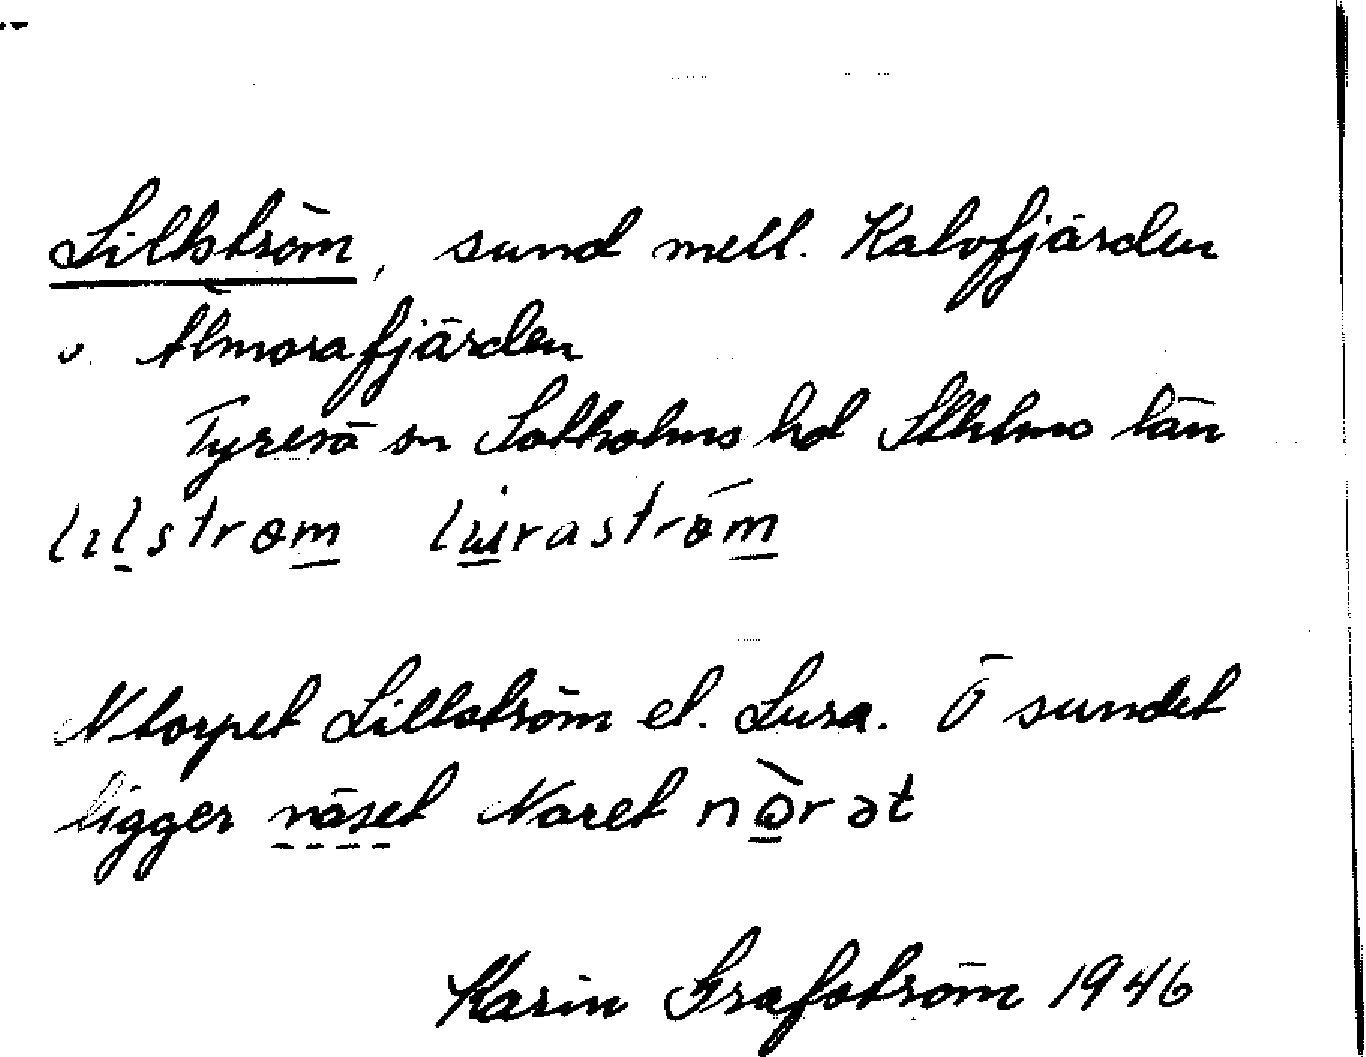 Lillström, sund mell. Kalvfjärden
o. Ålmorafjärden
Tyresö sn Sotholms hd Sthlms län
lilstrøm luraström
N torpet Lillström el. Lura. Ö sundet
ligger näset Naret nòrət
Karin Grafström 1946